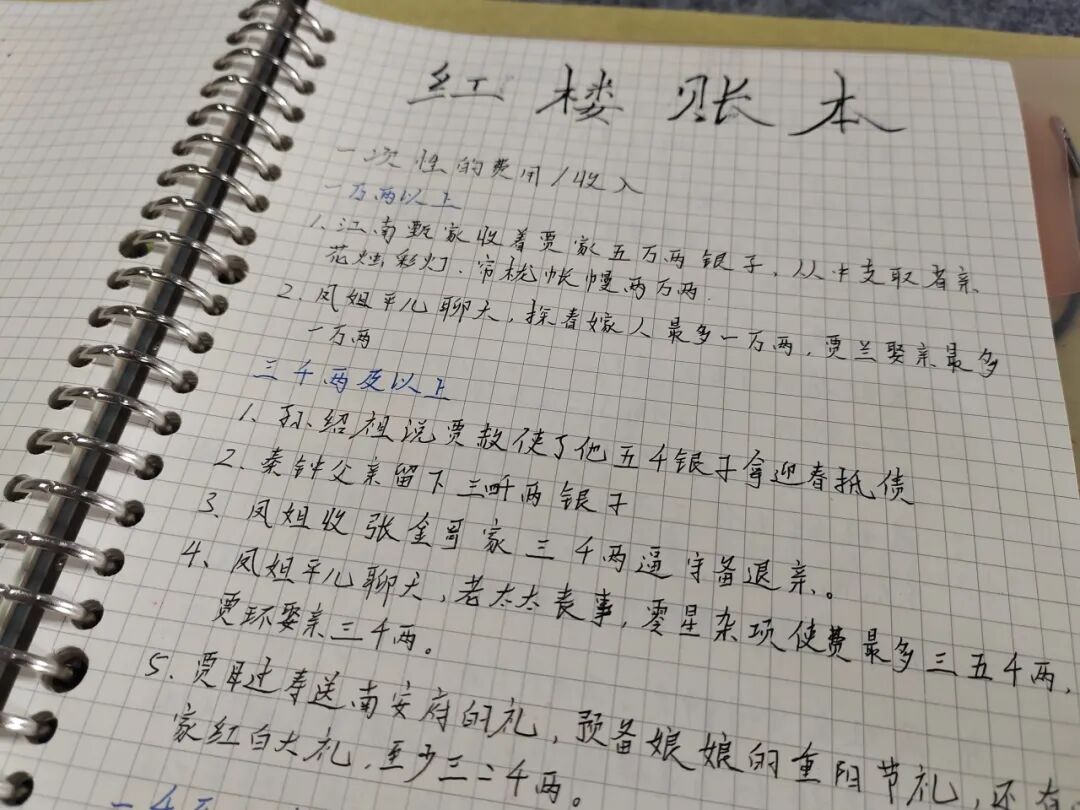 红楼账本
一次性的费用/收入
一万两以上
1. 江南甄家收着贾家五万两银子，从中支取省亲
花烛彩灯、帘栊帐幔两万两.
2. 凤姐平儿聊天，探春嫁人最多一万两，贾兰娶亲最多
一万两
三千两及以上
1、孙绍祖说贾赦使了他五千银子拿迎春抵债
2、秦钟父亲留下三四千两银子
3、凤姐收张金哥家三千两逼守备退亲。
4、凤姐平儿聊天，老太太丧事，零星杂项使费最多三五千两，
贾环娶亲三千两。
5、贾母过寿送南安府的礼，预备娘娘的重阳节礼，还有
家红白大礼，至少三二千两。
一千